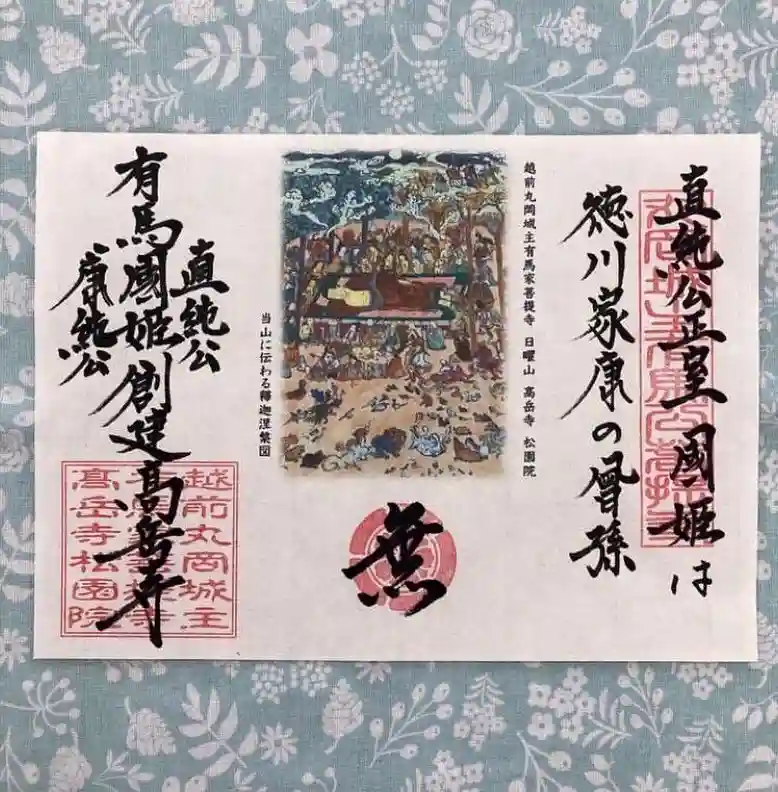 直純公正室國姫は
徳川家康の曾孫
越前丸岡城主有馬家菩提寺 日曜山 高岳寺 松園院
当山に伝わる釋迦涅槃図
無
直純公
有馬國姫創建高岳寺
康純公
越前丸岡城主
高岳寺松園院